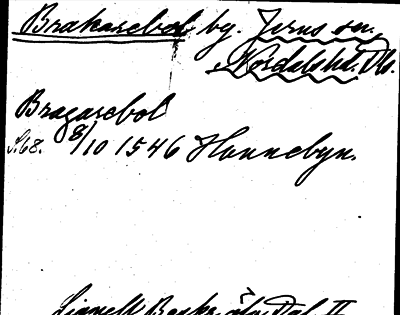 Brakarebol by. Jerns sn.
Nordals hd. Dls.
Bragarebol
S.68. 8/10 1546 Hannebyn.
Lignell Beskr. öfv. Dal II